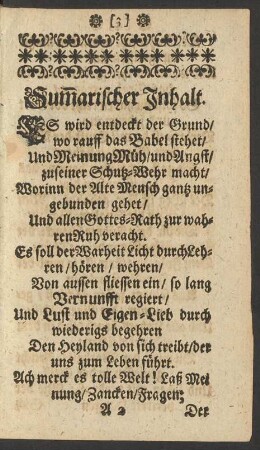 [3]
Sum̃arischer Jnhalt.
ES wird entdeckt der Grund/
wo rauff das Babel stehet/
Und Meinung Müh/und Angst/
zu seiner Schutz-Wehr macht/
Worinn der Alte Mensch gantz un-
gebunden gehet/
Und allen Gottes-Rath zur wah-
ren Ruh veracht.
Es soll der Warheit Licht durch Leh-
ren/hören/wehren/
Von aussen fliessen ein/so lang
Vernunfft regiert/
Und Lust und Eigen-Lieb durch
wiederigs begehren
Den Heyland von sich treibt/der
uns zum Leben führt.
Ach merck es tolle Welt! Laß Mei
nung/Zancken/Fragen;
A 2 Der